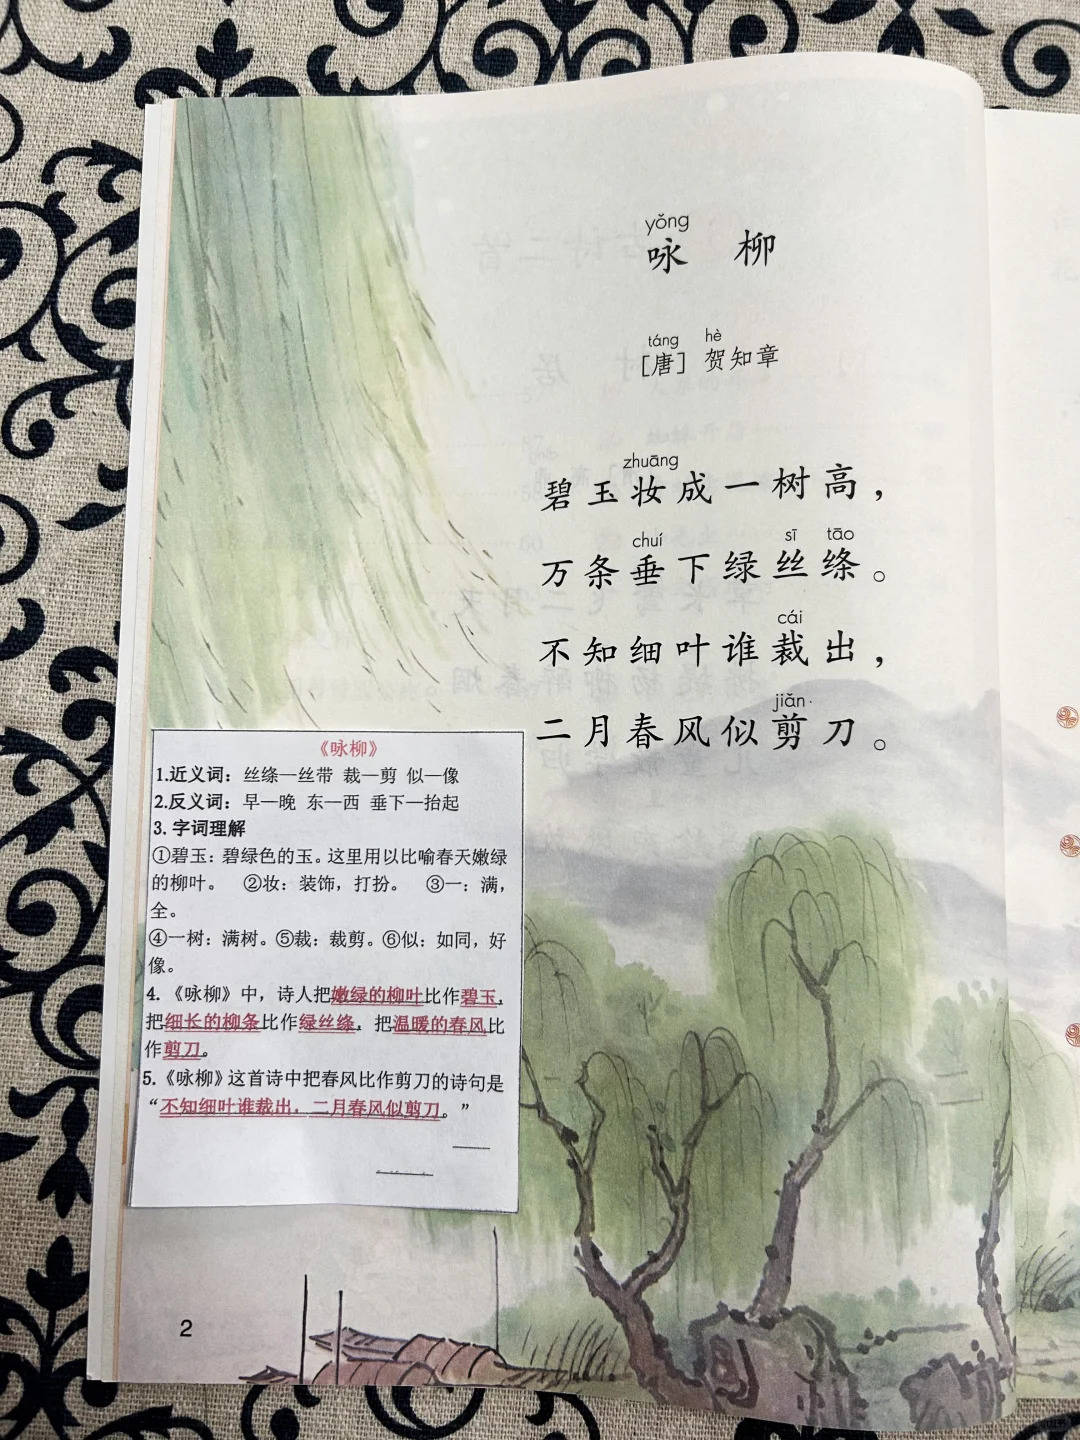 yǒng
咏 柳
táng hè
[唐] 贺知章
zhuāng
碧玉妆成一树高，
chuí sī tāo
万条垂下绿丝绦。
cái
不知细叶谁裁出，
jiǎn
二月春风似剪刀。
《咏柳》
1.近义词：丝绦—丝带 裁—剪 似—像
2.反义词：早—晚 东—西 垂下—抬起
3.字词理解
①碧玉：碧绿色的玉。这里用以比喻春天嫩绿
的柳叶。 ②妆：装饰，打扮。 ③一：满，
全。
④一树：满树。⑤裁：裁剪。⑥似：如同，好
像。
4.《咏柳》中，诗人把嫩绿的柳叶比作碧玉，
把细长的柳条比作绿丝绦，把温暖的春风比
作剪刀。
5.《咏柳》这首诗中把春风比作剪刀的诗句是
“不知细叶谁裁出，二月春风似剪刀。”
2